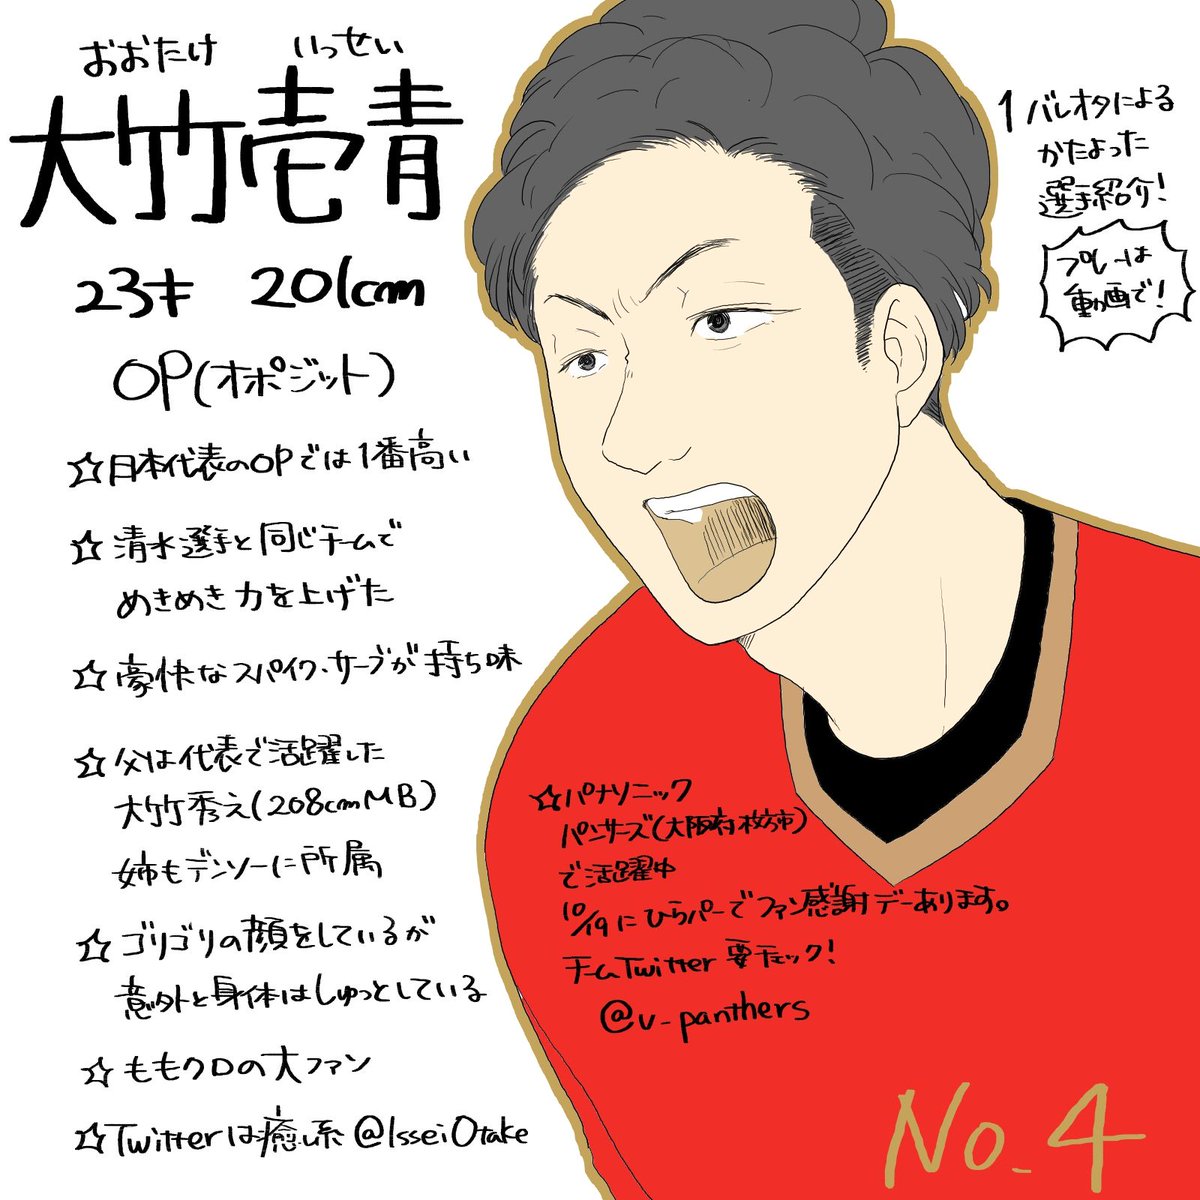 おおたけ いっせい
大竹壱青
23才 201cm
OP(オポジット)
☆日本代表のOPでは1番高い
☆清水選手と同じチームで
めきめき力を上げた
☆豪快なスパイク、サーブが持ち味
☆父は代表で活躍した
大竹秀之(208cmMB)
姉もデンソーに所属
☆ゴリゴリの顔をしているが
意外と身体はしゅっとしている
☆ももクロの大ファン
☆Twitterは癒し系 @IsseiOtake
1バレオタによる
かたよった
選手紹介!
プレーは
動画で!
☆パナソニック
パンサーズ(大阪府枚方市)
で活躍中
10/19にひらパーでファン感謝デーあります。
チームTwitter要チェック!
@v_panthers
No.4